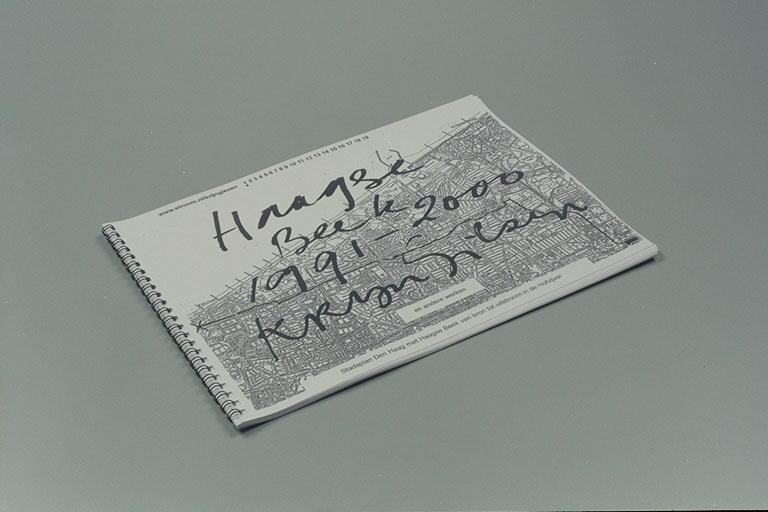 www.stroom.nl/krijngiezen 1 2 3 4 5 6 7 8 9 10 11 12 13 14 15 16 17 18 19
Haagse
Beek
1991-2000
Krijn Giezen
en andere werken
Stadsplan Den Haag met Haagse Beek van bron tot uitstroom in de Hofvijver